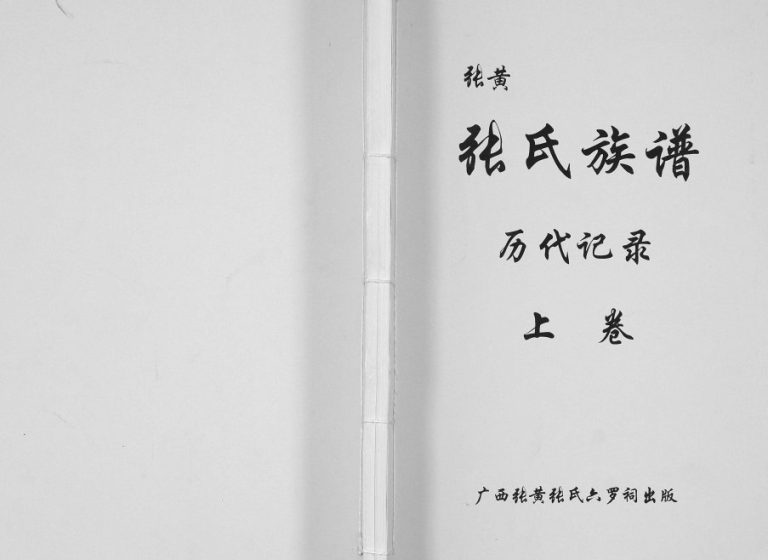 张黄
张氏族谱
历代记录
上卷
广西张黄张氏六罗祠出版